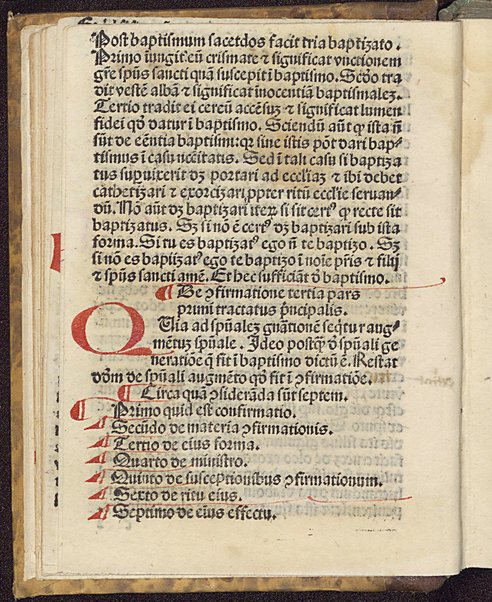 Post baptismum sacerdos facit tria baptizato.
Primo īungit eū crismate ⁊ significat vnctionem
gr̄e spūs sancti quā suscepit ī baptismo. Secūo tra
dit vestē albā ⁊ significat inocentiā baptismalez.
Tertio tradit ei cereū accēsuz ⁊ significat lumen
fidei qd̓ datur ī baptismo. Sciendū aūt ꝙ ista nō
sūt de eēntia baptismi: qz sine istis pōt dari bap⸗
tismus ī casu nccitatis. Sed ī tali casu si baptiza
tus supuixerit dz portari ad eccl'iaz ⁊ ibi debet
cathetizari ⁊ exorcizari ꝓpter ritū eccl'ie seruan⸗
dū. Nō aūt dz baptizari iteꝝ si sit cert⁹ ꝙ recte sit
baptizatus. Sz si nō ē cert⁹ dz baptizari sub ista
forma. Si tu es baptizat⁹ ego nō te baptizo. Sz
si nō es baptizat⁹ ego te baptizo ī noīe pr̄is ⁊ filij
⁊ spūs sancti amē. Et hec sufficiāt d̓ baptismo.
¶ De ꝯfirmatione tertia pars
primi tractatus prīncipalis.
QUia ad spūalez gnātionē seqtur aug⸗
mētuz spūale. Ideo postꝙ̄ d̓ spūali ge
neratiōe q̄ fit ī baptismo dictū ē. Restat
vidēdum de spūali augmēto qd̓ fit ī ꝯfirmatiōe.
¶ Circa quā ꝯsiderāda sūt septem.
¶ Primo quid est confirmatio.
Secūdo de materia ꝯfirmationis.
Tertio de eius forma.
Quarto de ministro.
Quinto de susceptionibus ꝯfirmationum.
Sexto de ritu eius.
Septimo de eius effectu.